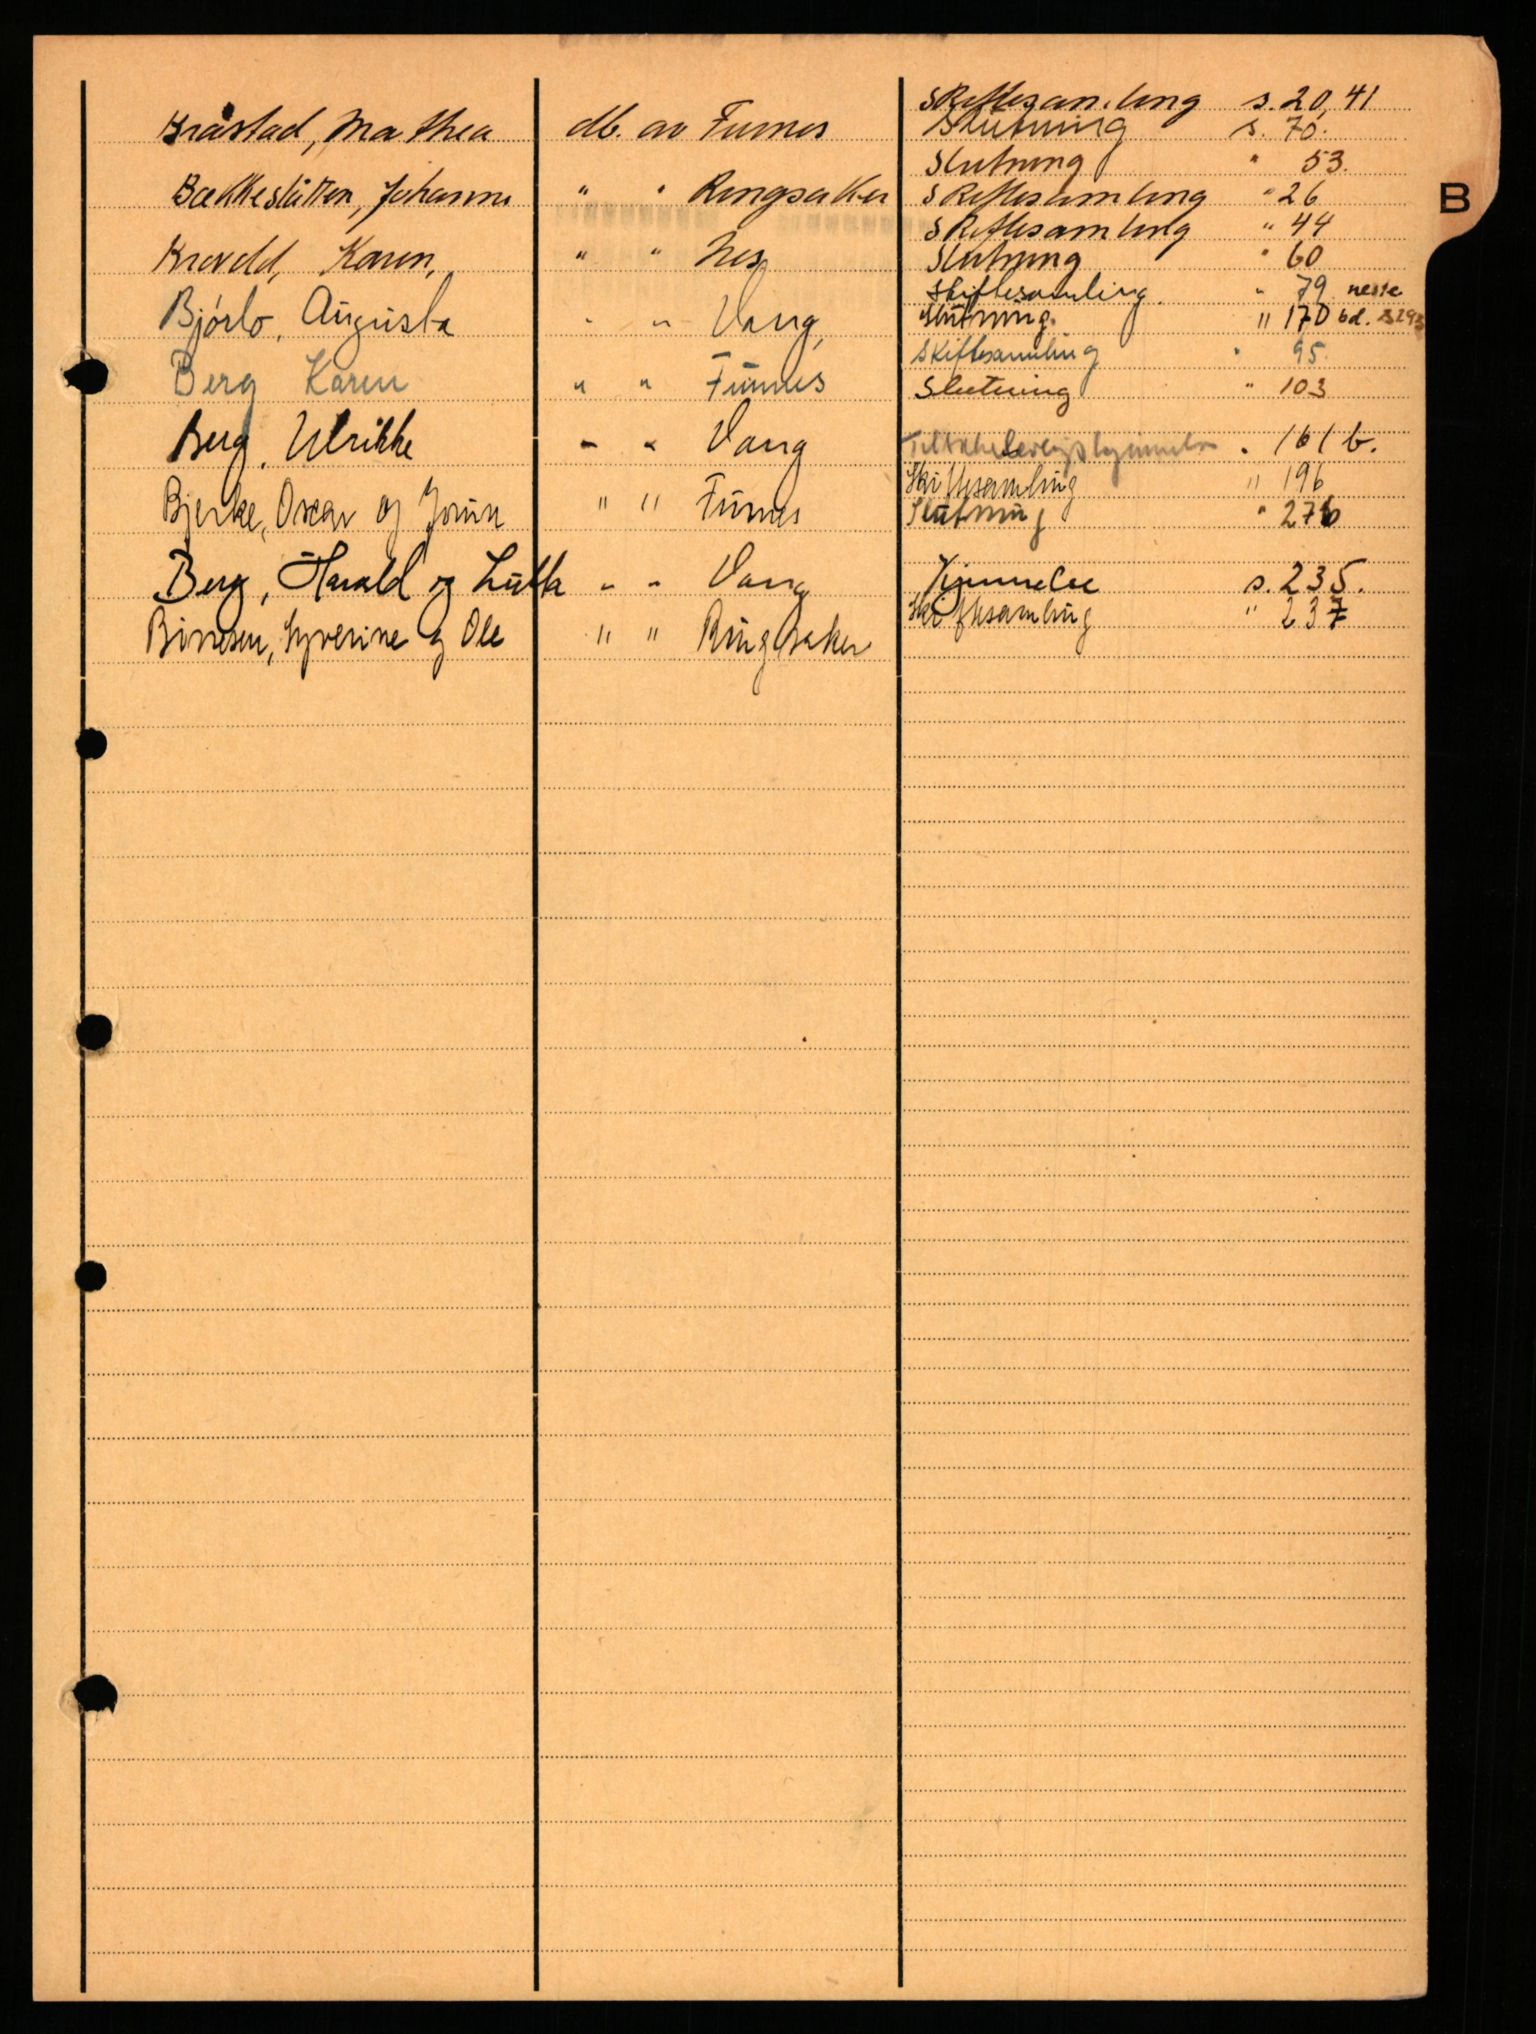 Skiftesamling s. 20, 41
Bråstad, Mathea db. av Furnes Slutning s. 70.
Slutning " 53.
Bækkeslåtten, Johanne " " Ringsaker Skiftesamling " 26
Skiftesamling " 44
Karen, " " Nes Slutning " 60
Skiftesamling " 79 neste
Bjørlo, Augusta " " Vang, Slutning " 170 bd.
Skiftesamling " 95.
Berg Karen " " Furnes Slutning " 103
Berg, Ulrikke " " Vang " 161 b.
Skiftesamling " 196
Bjerke, Oscar og Jorun " " Furnes Slutning "
Berg, Harald og " " Vang Kjennelse s. 235.
Skiftesamling " 237
Syverine og Ole " " Ringsaker
B